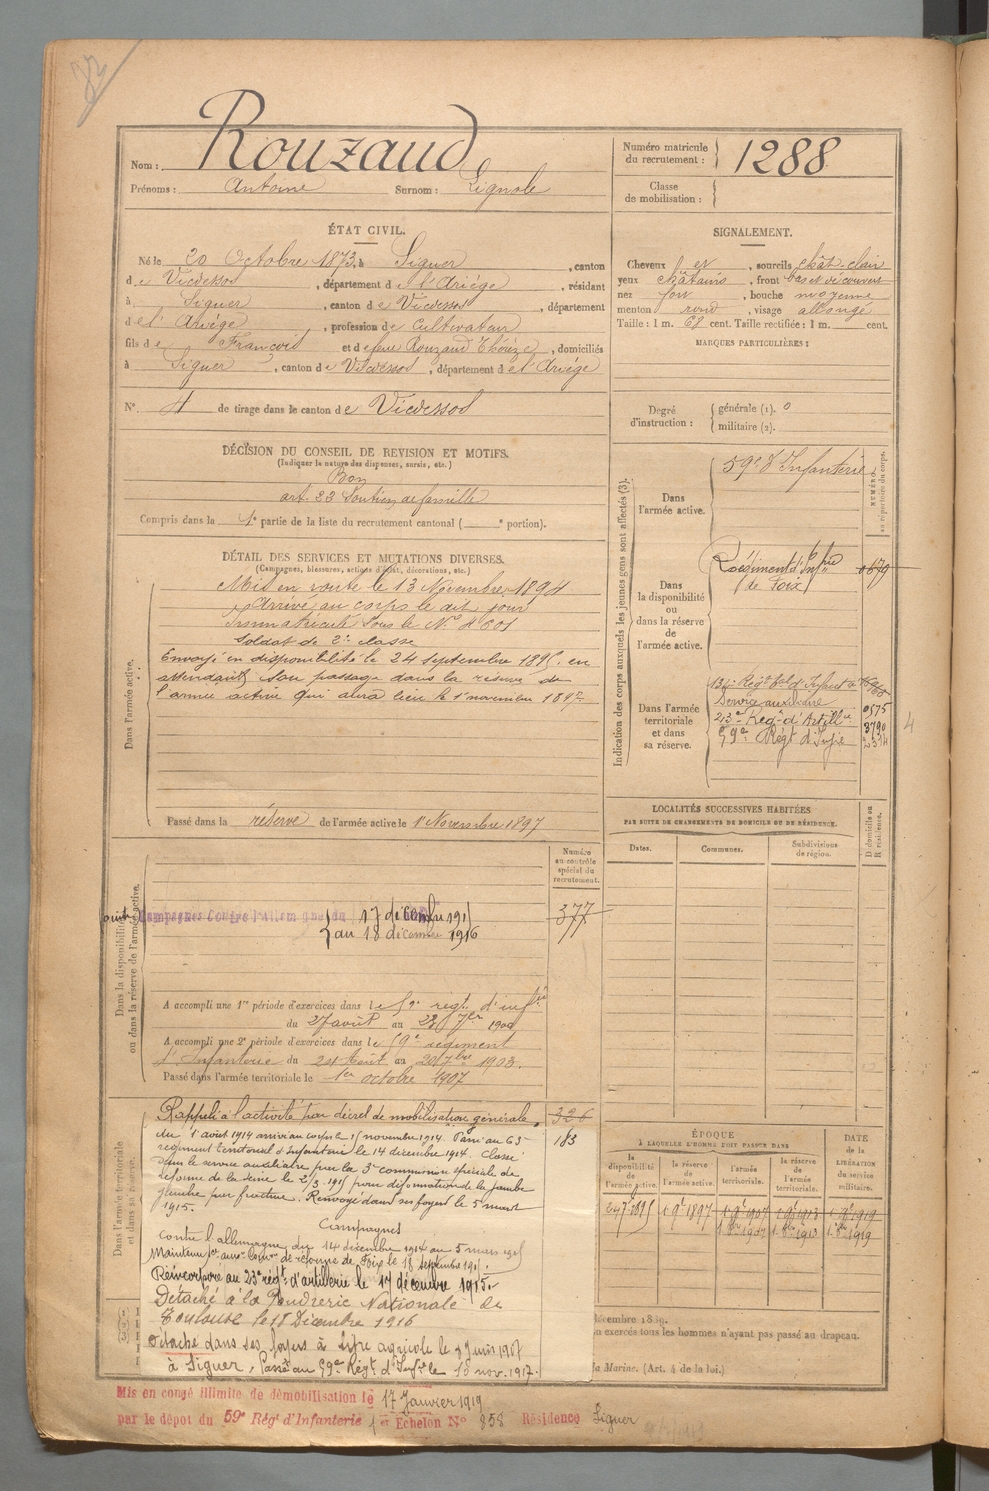 Nom : Rouzaud
Prénoms : Antoine Surnom : Lignole
Numéro matricule du recrutement : 1288
Classe de mobilisation :
ÉTAT CIVIL.
Né le 20 Octobre 1873, à Siguer, canton
de Vicdessos, département de l'Ariège, résidant
à Siguer, canton de Vicdessos, département
de l'Ariège, profession de cultivateur
fils de François et de feue Rouzaud Thérèze, domiciliés
à Siguer, canton de Vicdessos, département de l'Ariège
N° 4 de tirage dans le canton de Vicdessos
SIGNALEMENT.
Cheveux et, sourcils chât-clair
yeux châtains, front bas et découvert
nez fort, bouche moyenne
menton rond, visage allongé
Taille : 1 m. 68 cent. Taille rectifiée : 1 m. cent.
MARQUES PARTICULIÈRES :
Degré d'instruction : générale (1). 0
militaire (2).
DÉCISION DU CONSEIL DE REVISION ET MOTIFS.
(Indiquer la nature des dispenses, sursis, etc.)
Bon
art. 23 Soutien de famille
Compris dans la 1e partie de la liste du recrutement cantonal ( e portion).
DÉTAIL DES SERVICES ET MUTATIONS DIVERSES.
(Campagnes, blessures, actions d'éclat, décorations, etc.)
Dans l'armée active.
Mis en route le 13 Novembre 1894
Arrivé au corps le dit jour
Immatriculé sous le N° 4601
Soldat de 2e classe
Envoyé en disponibilité le 24 septembre 1895 en
attendant son passage dans la réserve de
l'armée active qui aura lieu le 1er novembre 1897
Passé dans la réserve de l'armée active le 1er Novembre 1897
Indication des corps auxquels les jeunes gens sont affectés (3).
NUMÉRO au répertoire du corps.
Dans l'armée active.
59e d'Infanterie
Dans la disponibilité ou dans la réserve de l'armée active.
Régiment d'Infrie 0679
de Foix
Dans l'armée territoriale et dans sa réserve.
Service auxiliaire 0575
23e Regt d'Artillie 3790
59e Régt d'Infie
LOCALITÉS SUCCESSIVES HABITÉES
PAR SUITE DE CHANGEMENTS DE DOMICILE OU DE RÉSIDENCE.
Dates. Communes. Subdivisions de région. D domicile ou R résidence.
Dans la disponibilité ou dans la réserve de l'armée active.
Numéro au contrôle spécial du recrutement.
377
Campagnes Contre l'allemagne du 17 décembre 1915
au 18 décembre 1916
A accompli une 1re période d'exercices dans le 59e régt d'infrie
du 27 août au 23 7bre 1900
A accompli une 2e période d'exercices dans le 59e régiment
d'Infanterie du 24 Août au 20 7bre 1903.
Passé dans l'armée territoriale le 1er octobre 1907
Dans l'armée territoriale et dans sa réserve.
Rappelé à l'activité par décret de mobilisation générale 326
du 1 août 1914 arrivé au corps le 15 novembre 1914. Passé au 63e 183
régiment territorial d'Infanterie le 14 décembre 1914. Classé
dans le service auxiliaire par la 3e commission spéciale de
réforme de la Seine le 2/3 1915 pour déformation de la jambe
gauche par fracture. Renvoyé dans ses foyers le 5 mars
1915.
Campagnes
contre l'allemagne du 14 décembre 1914 au 5 mars 1915
Maintenu Ser auxre Comon de réforme de Foix le 18 septembre 1915.
Réincorporé au 23e régt d'artillerie le 17 décembre 1915.
Détaché à la Poudrerie Nationale de
Toulouse le 18 Décembre 1916
Détaché dans ses foyers à titre agricole le 9 juin 1917
à Siguer, Passé au 59e Régt d'Infie le 15 nov. 1917.
ÉPOQUE
À LAQUELLE L'HOMME DOIT PASSER DANS
la disponibilité de l'armée active. la réserve de l'armée active. l'armée territoriale. la réserve de l'armée territoriale. DATE de la LIBÉRATION du service militaire.
1 9e 1897 1 9e 1907 1 9e 1913 1 9e 1919
1 8bre 1907 1 8bre 1913 1 8bre 1919
décembre 1889.
n exercés tous les hommes n'ayant pas passé au drapeau.
la Marine. (Art. 4 de la loi.)
Mis en congé illimité de démobilisation le 17 Janvier 1919
par le dépot du 59e Rég' d'Infanterie 1er Echelon N° 858 Résidence Siguer